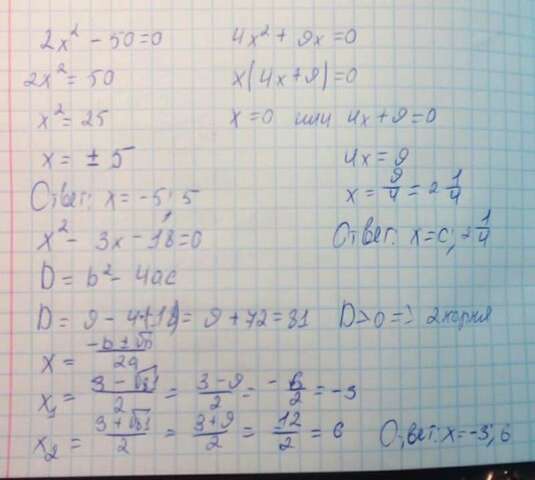 2x² - 50 = 0
2x² = 50
x² = 25
x = ± 5
Ответ: x = -5; 5
4x² + 9x = 0
x(4x+9) = 0
x = 0 или 4x + 9 = 0
4x = 9
x = 9/4 = 2 1/4
Ответ: x = 0; 2 1/4
x² - 3x - 18 = 0
D = b² - 4ac
D = 9 - 4·(-18) = 9 + 72 = 81 D > 0 => 2 корня
x = (-b ± √D)/2a
x₁ = (3 - √81)/2 = (3 - 9)/2 = -6/2 = -3
x₂ = (3 + √81)/2 = (3 + 9)/2 = 12/2 = 6 Ответ: x = -3; 6